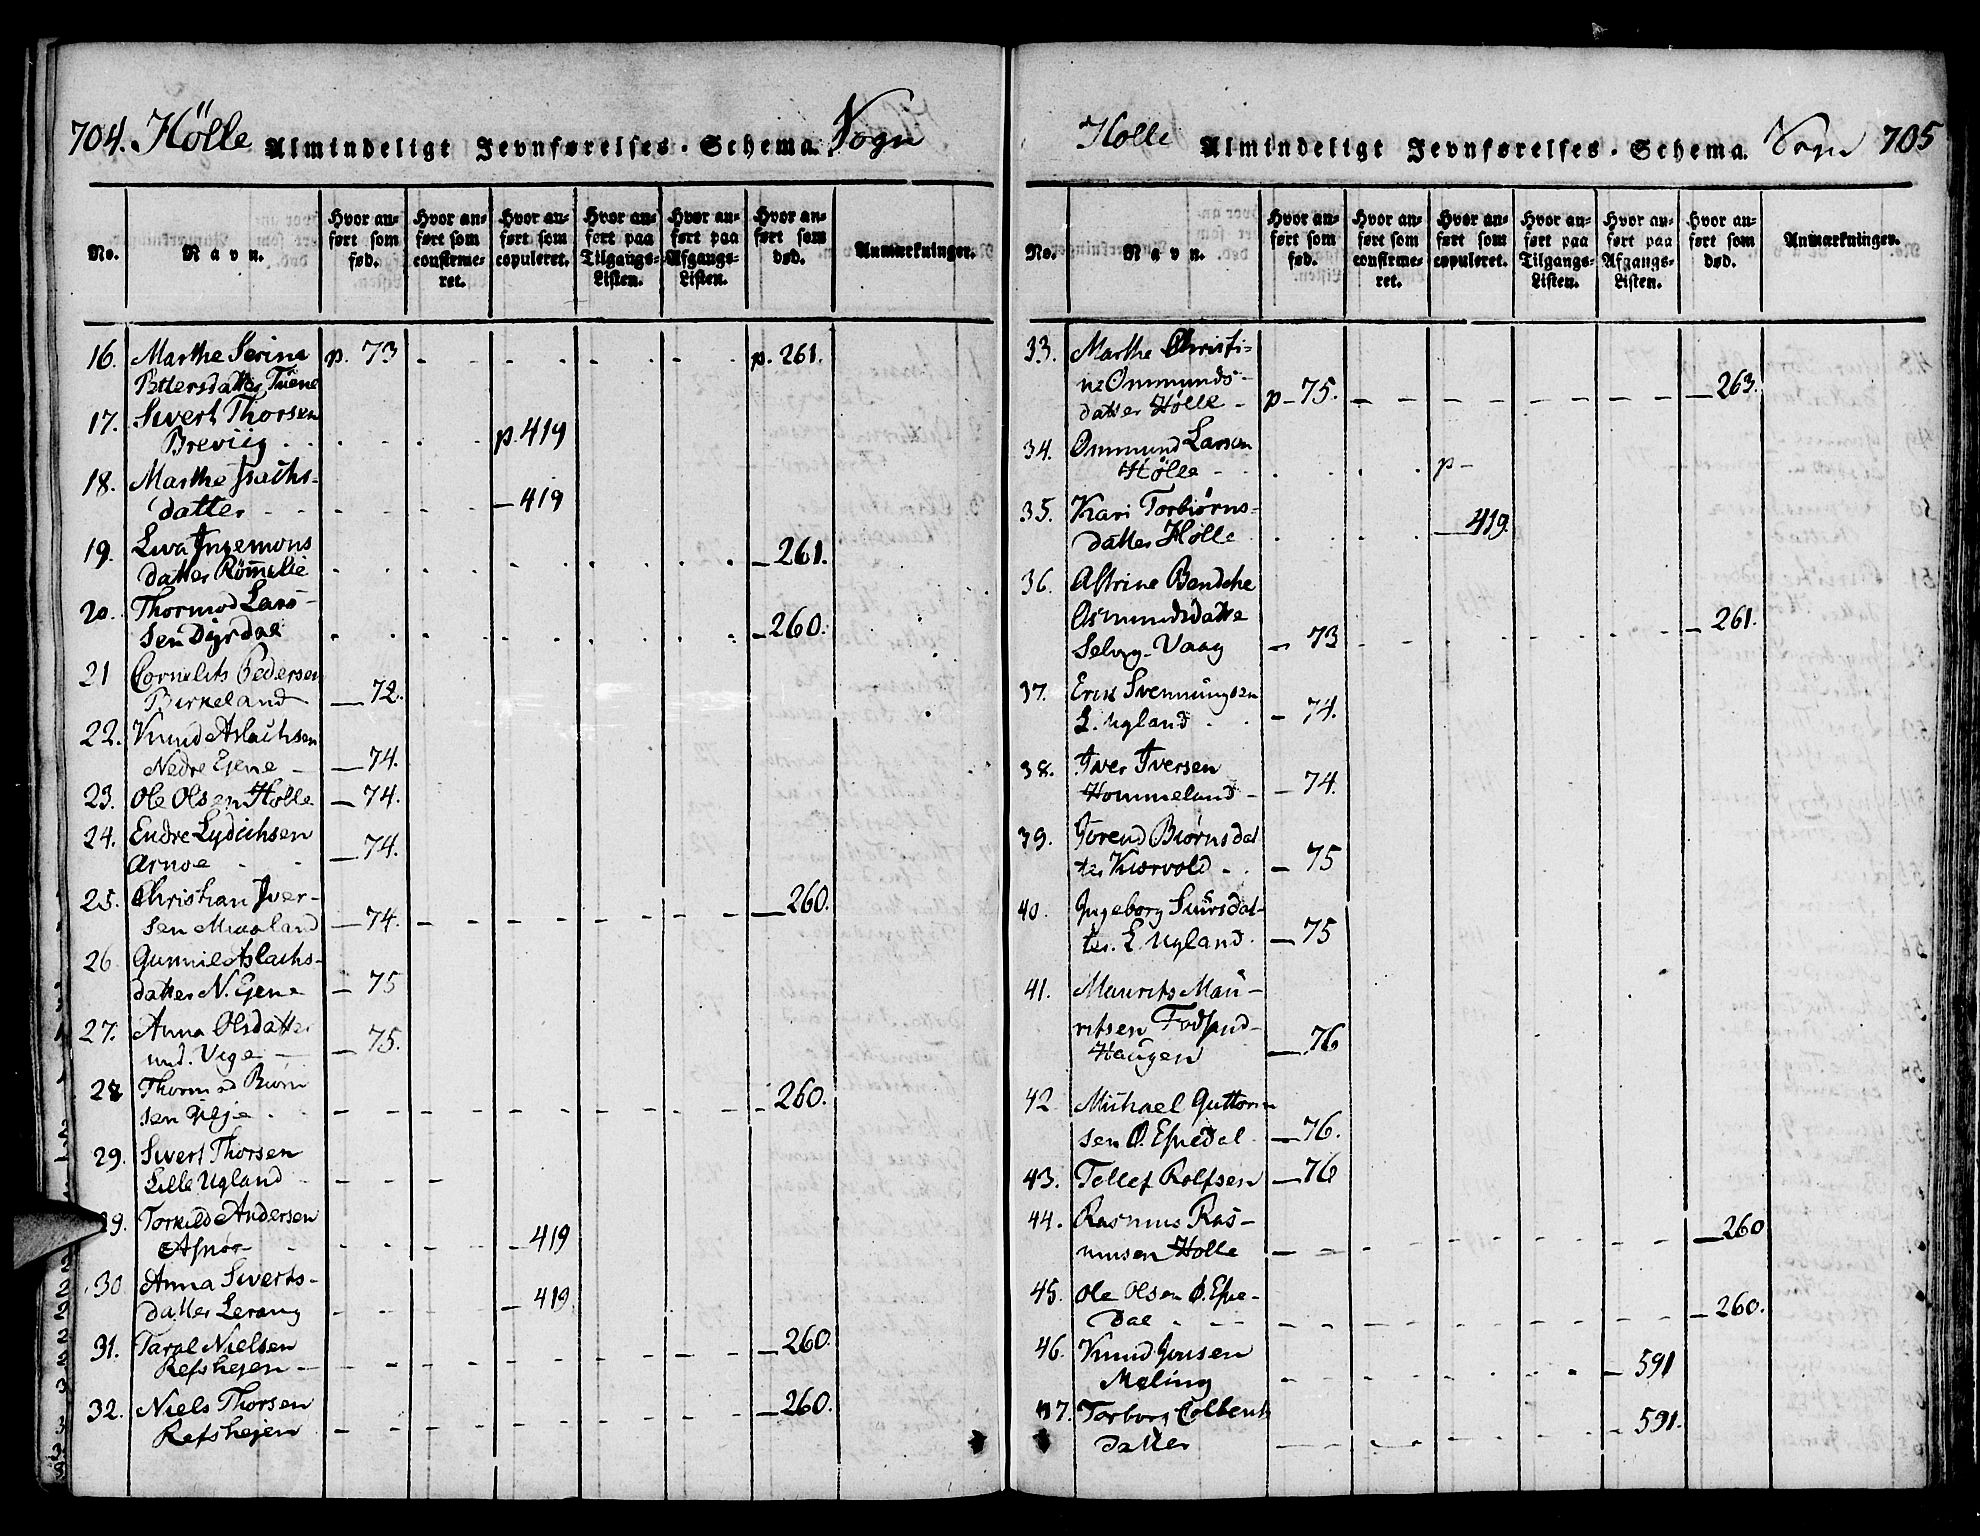 704. Hölle Almindeligt Jevnførelses-Schema. Sogn
No.
Navn.
Hvor anført som fød.
Hvor anført som confirmeret.
Hvor anført som copuleret.
Hvor anført paa Tilgangs-Listen.
Hvor anført paa Afgangs-Listen.
Hvor anført som død.
Anmærkninger.
16. Marthe Serine p. 73 - - - - - p. 261.
Pettersdatter Tuene
17. Sivert Thorsen
Breviig . . . . p. 419
18. Marthe Isachs-
datter - - - - - 419
19. Siva Ingemons
datter Römelie . . . . . . - 261.
20. Thormod Lars-
sen Dyrdal . . . . . . - 260.
21 Cornelits Pedersen
Birkeland - 72.
22. Knud Aslachsen
Nedre Ejene - 74.
23. Ole Olsen Holle - 74.
24. Endre Lydichsen
Arnoe - - - 74.
25. Christian Iver-
sen Miaaland - 74. - - - - - 260.
26. Gunnil Aslachs-
datter N. Ejene - 75
27. Anna Olsdatter
und. Vige - - 75.
28 Thormod Biørn
sen Gilje . . - - - - - - 260.
29. Sivert Thorsen
Lille Ugland - - - -
29. Torkild Andersen
Asnør - - - - - 419
30 Anna Siverts-
datter Lerang - - - - 419
31. Taral Nielsen
Refshejen - - - - - - - 260.
32. Niels Thorsen
Refshejen - - - - - - 260.
Holle Almindeligt Jevnførelses-Schema. Sogn 705
No.
Navn.
Hvor anført som fød.
Hvor anført som confirmeret.
Hvor anført som copuleret.
Hvor anført paa Tilgangs-Listen.
Hvor anført paa Afgangs-Listen.
Hvor anført som død.
Anmærkninger.
33. Marthe Christi-
ne Ommunds-
datter Hölle - p - 75. - - - - - 263.
34. Ommund Larsen
Hölle - . . . p -
35. Kari Torbiørns-
datter Hölle . . . - 419.
36. Astrine Bendche
Asmundsdatter
Selvig-Vaag - 73 - - - - - 261.
37. Erik Svennungsen
L. Ugland . . - 74.
38. Iver Iversen
Hommeland - - 74.
39. Gorend Biørnsdat
ter Kiørvold . . - 75
40. Ingeborg Siursdat-
ter. L. Ugland. - 75
41. Maurits Mau-
ritsen Fodsand-
Haugen - 76
42 Michael Guttorm
sen Ø. Espedal - 76.
43. Tellef Rolfsen - 76
44. Rasmus Ras-
musen Holle - - - - - - - 260
45. Ole Olsen Ø. Espe-
dal . - - - - - - - 260.
46. Knud Jonsen
Meling - - - - - 591
47. Torborg Colbents
datter - - - - - 591.